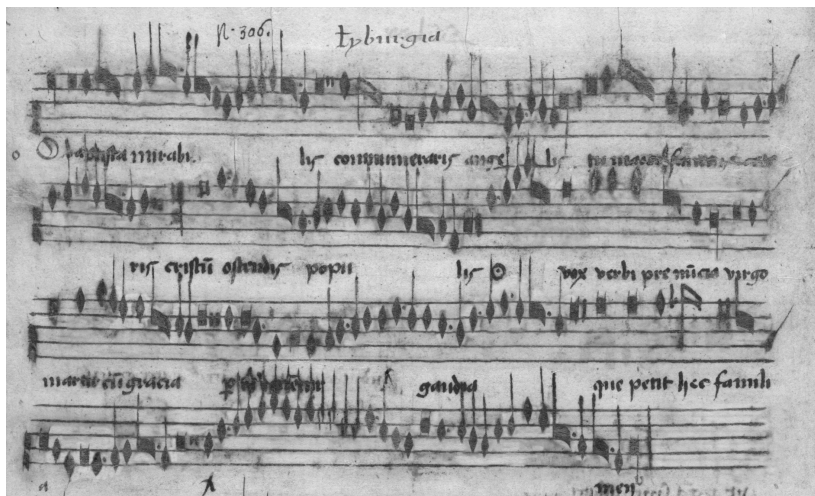 N. 306. tyburgia
O baptista mirabi lis connumeraris ange lis tu magos
ris cristū ostendis popu lis vox verbi pre nūcia virgo
maria cū gracia gaudia que petit hec famili
a A men